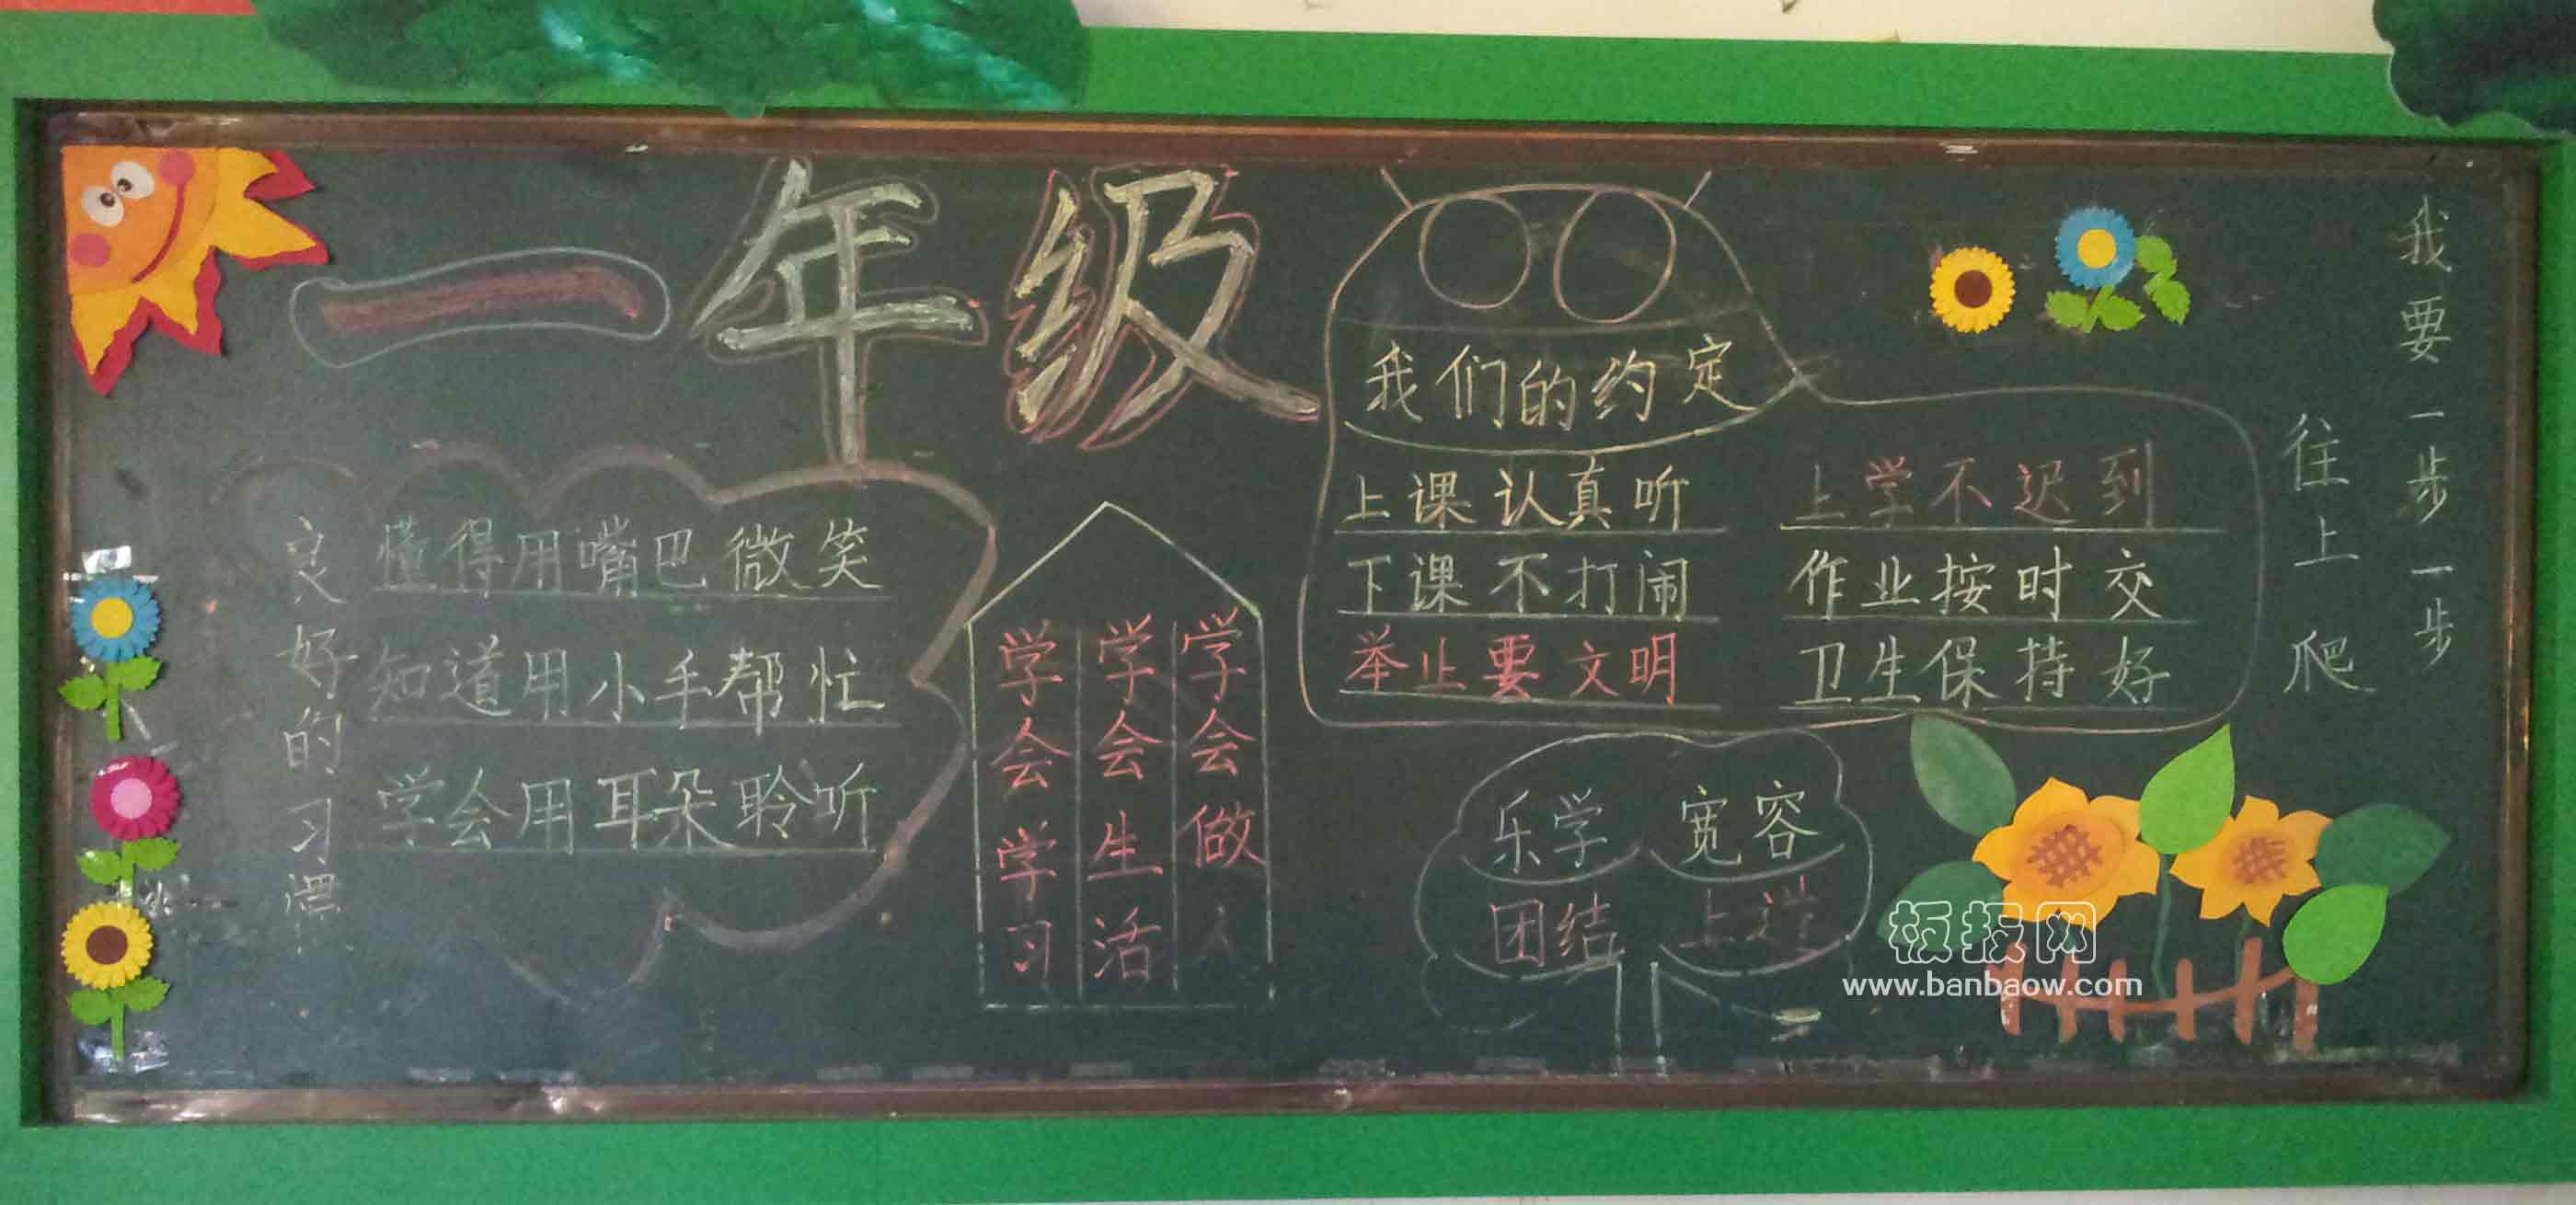 一年级
良好的习惯
懂得用嘴巴微笑
知道用小手帮忙
学会用耳朵聆听
学会学习
学会生活
学会做人
我们的约定
上课认真听
下课不打闹
举止要文明
上学不迟到
作业按时交
卫生保持好
乐学
宽容
团结
上进
我要一步一步
往上爬
板报网
www.banbaow.com